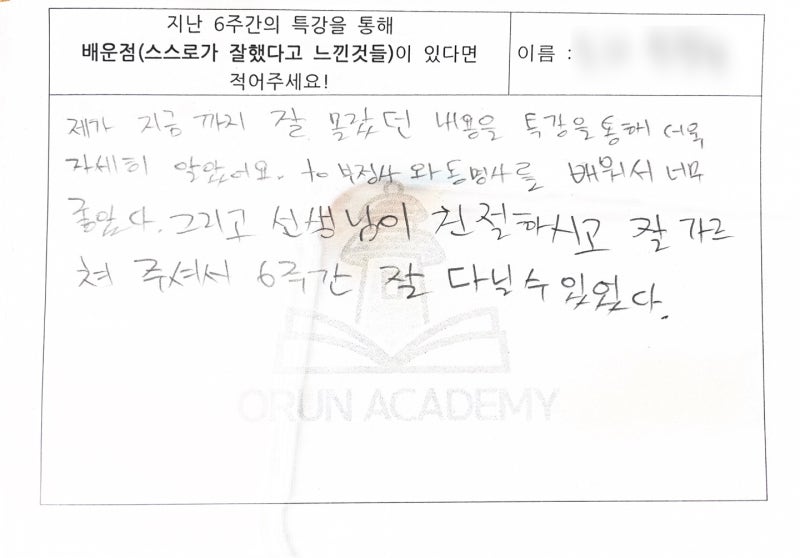 지난 6주간의 특강을 통해
배운점(스스로가 잘했다고 느낀것들)이 있다면
적어주세요!
이름 :
제가 지금 까지 잘 몰랐던 내용을 특강을 통해 더욱
자세히 알았어요. to 부정사 와 동명사를 배워서 너무
좋았다. 그리고 선생님이 친절하시고 잘 가르
쳐 주셔서 6주간 잘 다닐 수 있었다.
ORUN ACADEMY